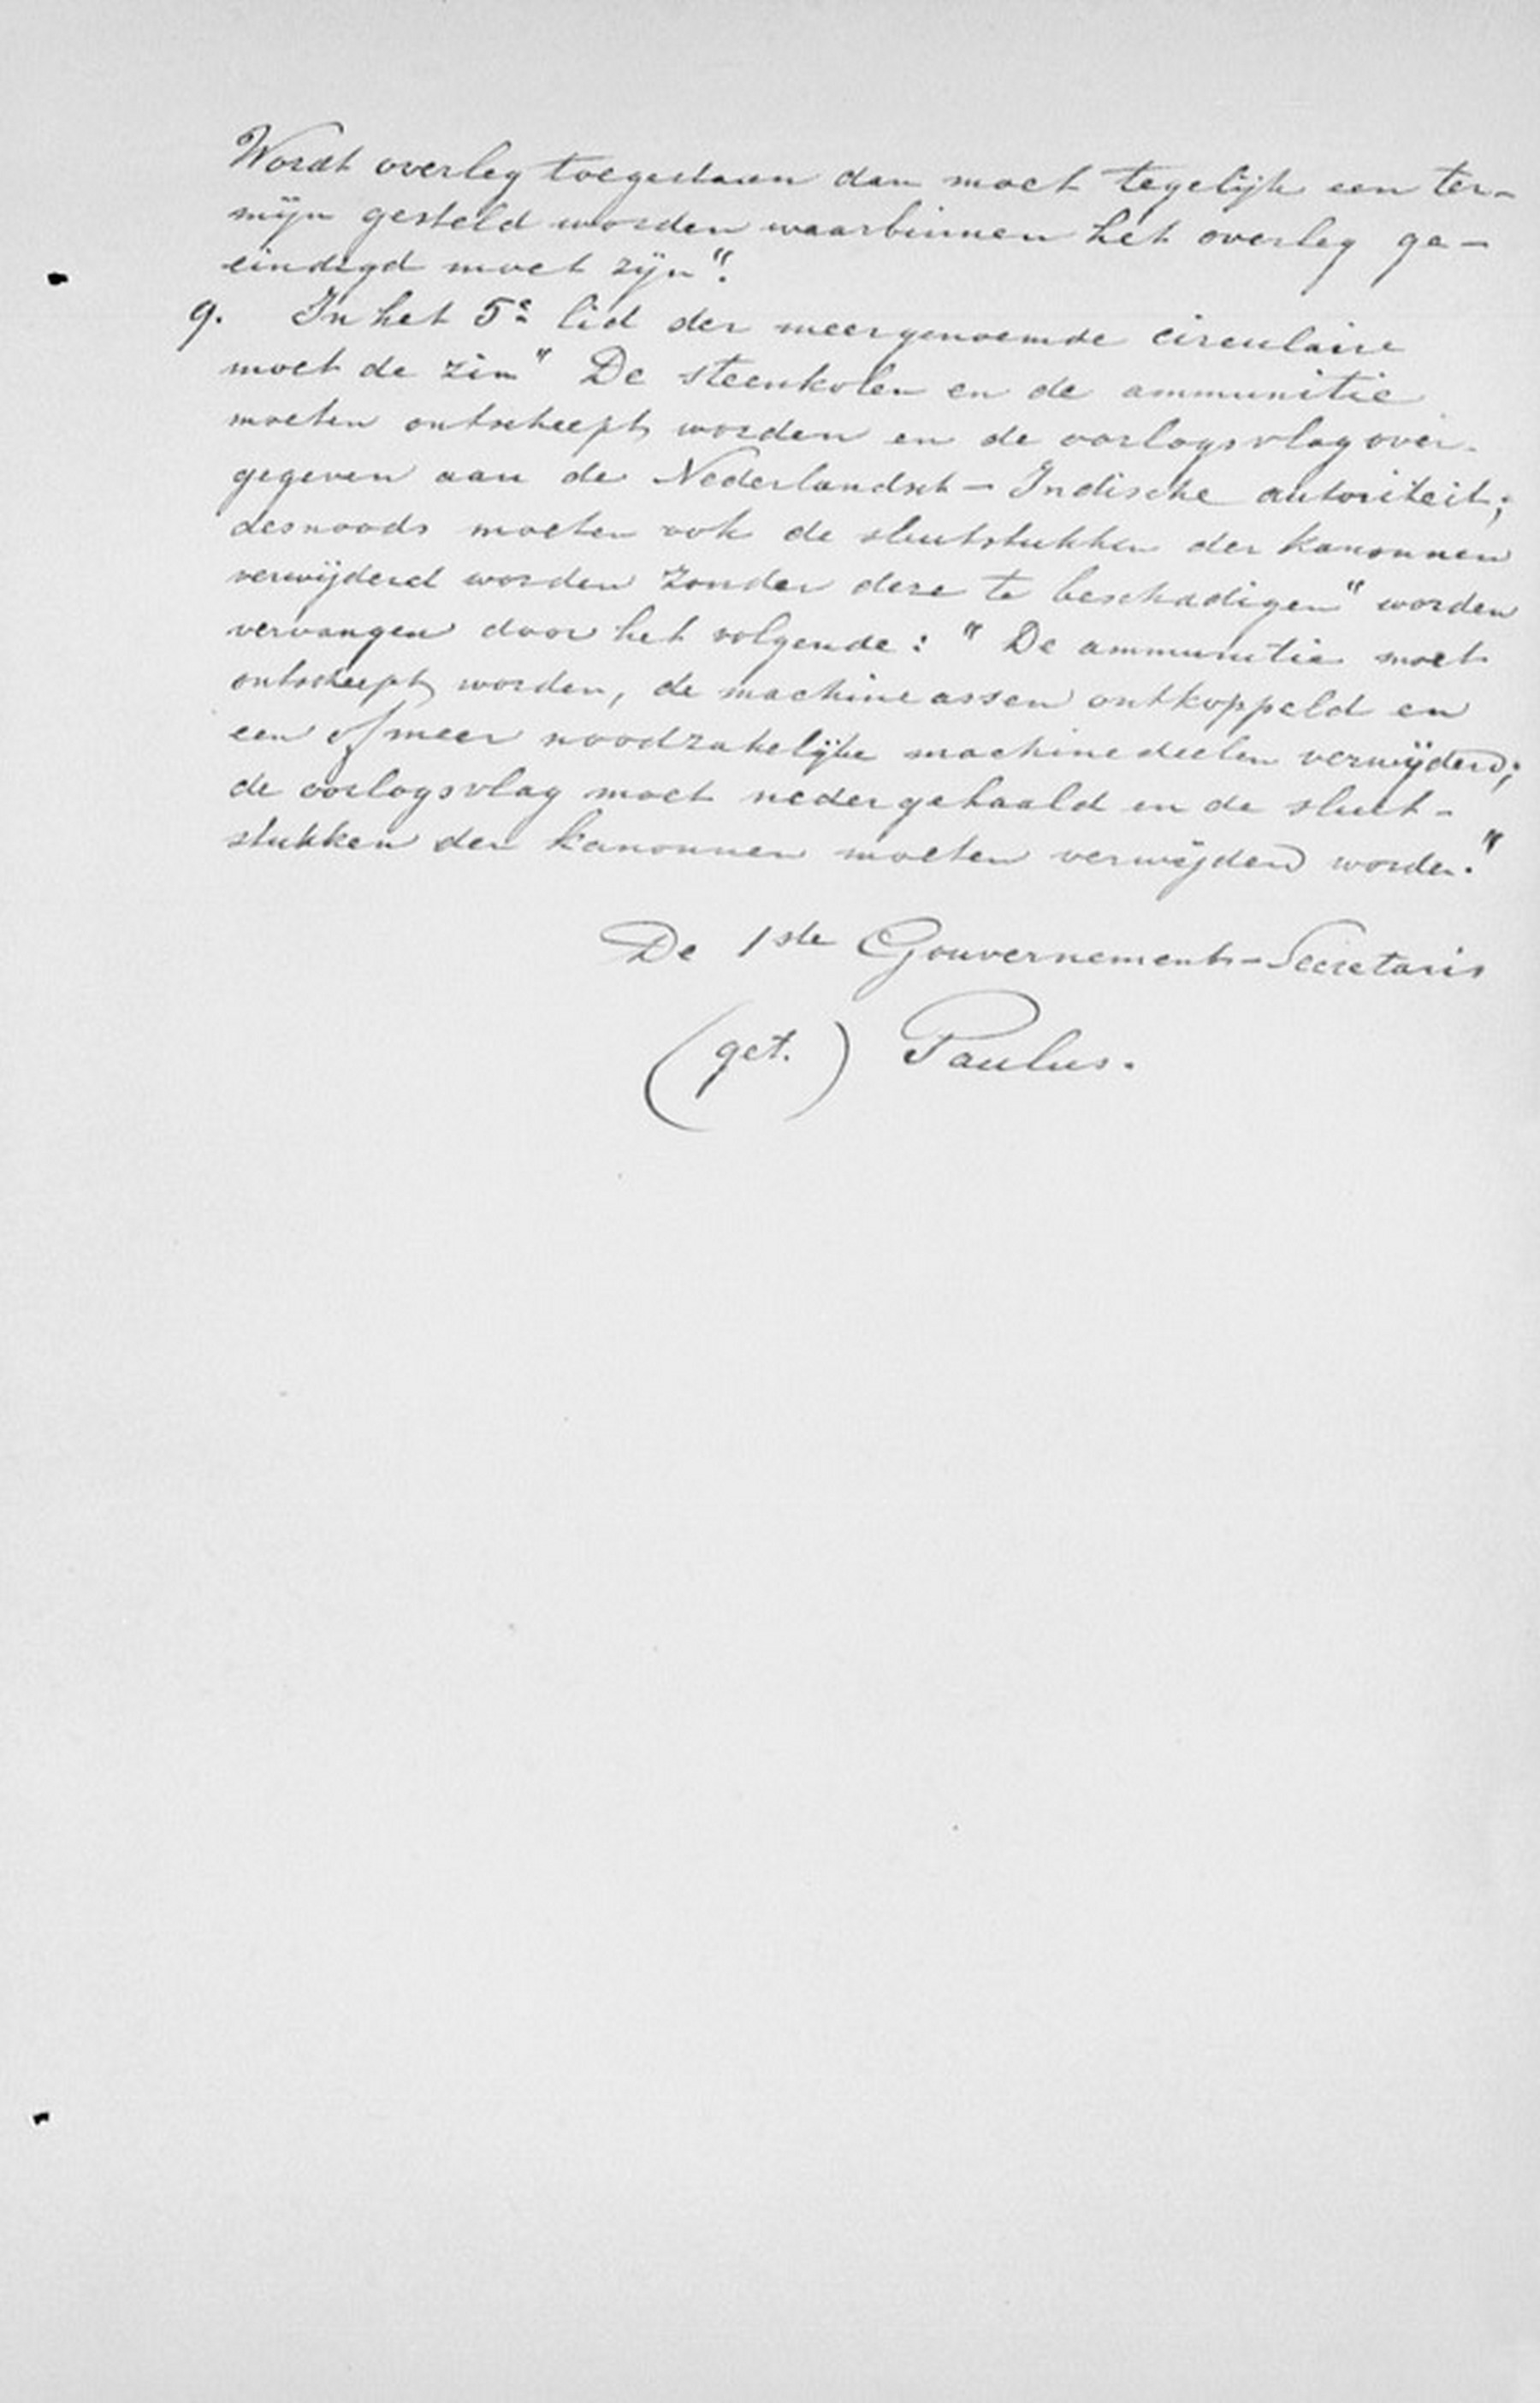 Wordt overleg toegestaan dan moet tegelijk een ter-
mijn gesteld worden waarbinnen het overleg ge-
eindigd moet zijn".
g. In het 5e lid der meergenoemde circulaire
moet de zin "De steenkolen en de ammunitie
moeten ontscheept worden en de oorlogsvlag over-
gegeven aan de Nederlandsch-Indische autoriteit;
desnoods moeten ook de sluitstukken der kanonnen
verwijderd worden zonder deze te beschadigen" worden
vervangen door het volgende: "De ammunitie moet
ontscheept worden, de machineassen ontkoppeld en
een of meer noodzakelijke machinedeelen verwijderd;
de oorlogsvlag moet nedergehaald en de sluit-
stukken der kanonnen moeten verwijderd worden."
De 1ste Gouvernements-Secretaris
(get.) Paulus.